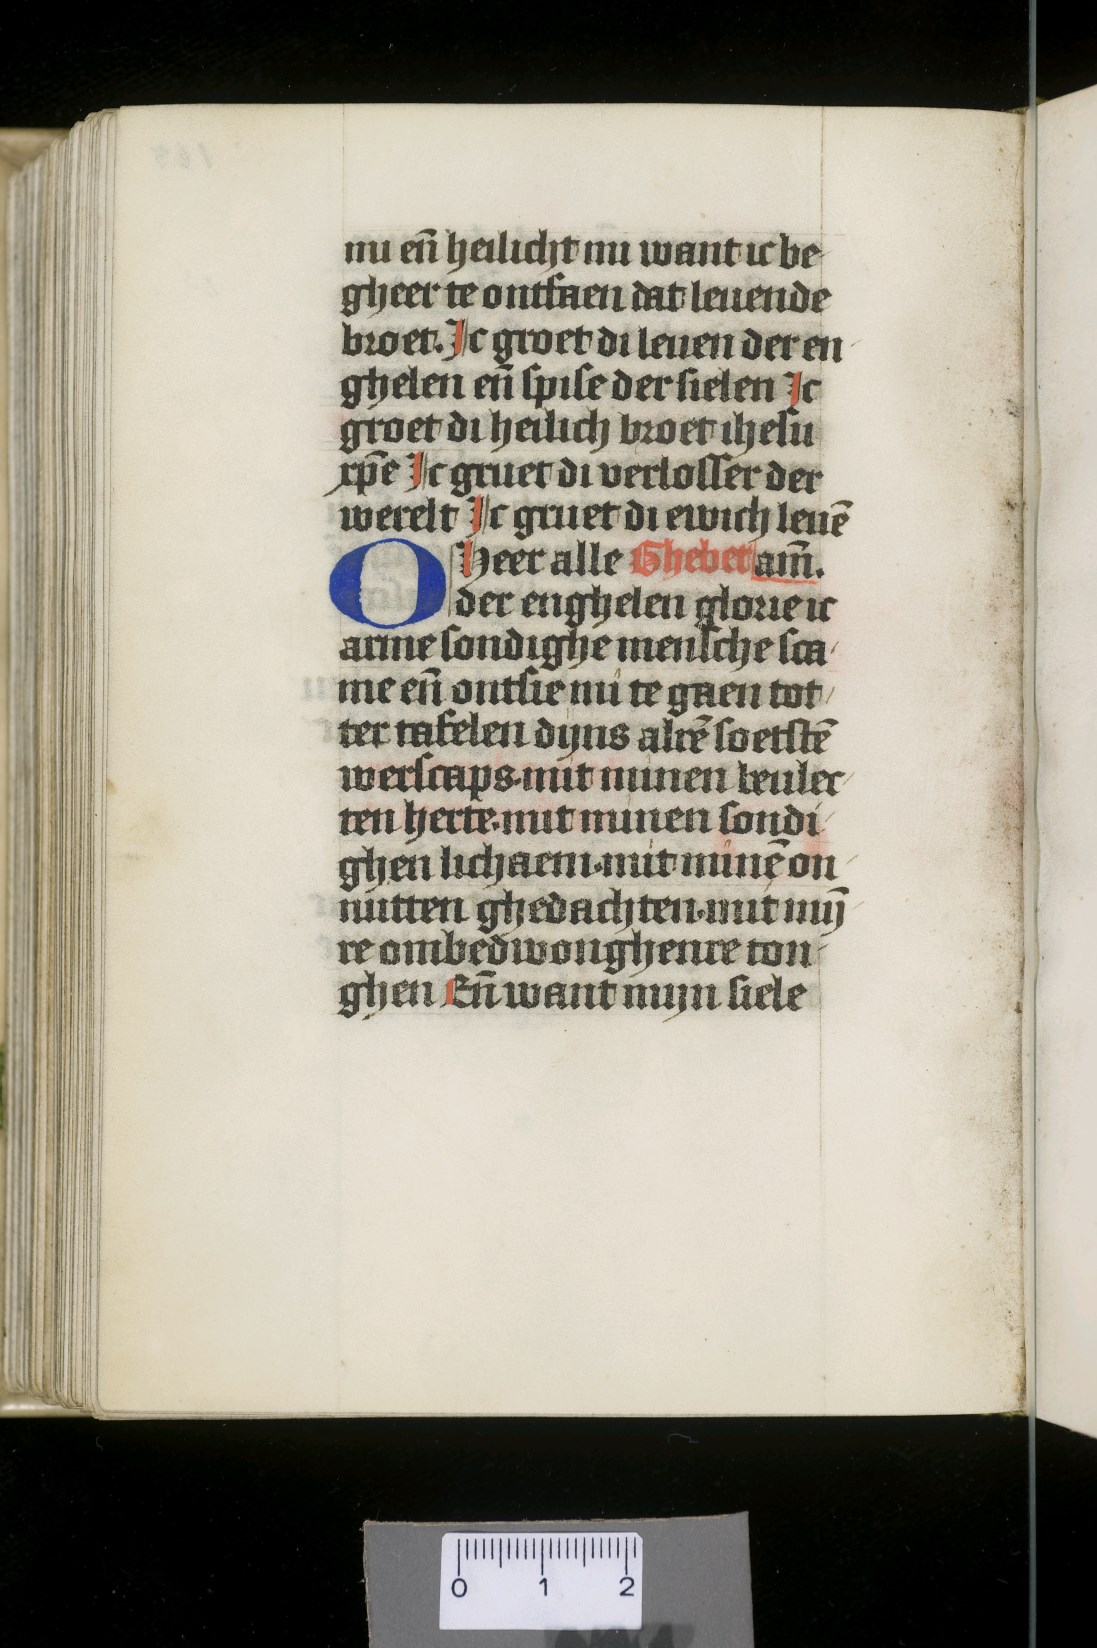 mi en̄ heilicht mi want ic be
gheer te ontfaen dat leuende
broet. Ic groet di leuen der en
ghelen en̄ spise der sielen Ic
groet di heilich broet ihesu
xp̄e Ic gruet di verlosser der
werelt Ic gruet di ewich leuē
O Heer alle Ghebet am̄.
der enghelen glorie ic
arme sondighe mensche sca
me en̄ ontsie mi te gaen tot
ter tafelen dijns alrē soetstē
werscaps. mit minen beulec
ten herte. mit minen sondi
ghen lichaem. mit minē on
nutten ghedachten. mit mij̄
re ombedwonghenre ton
ghen En̄ want mijn siele
0 1 2